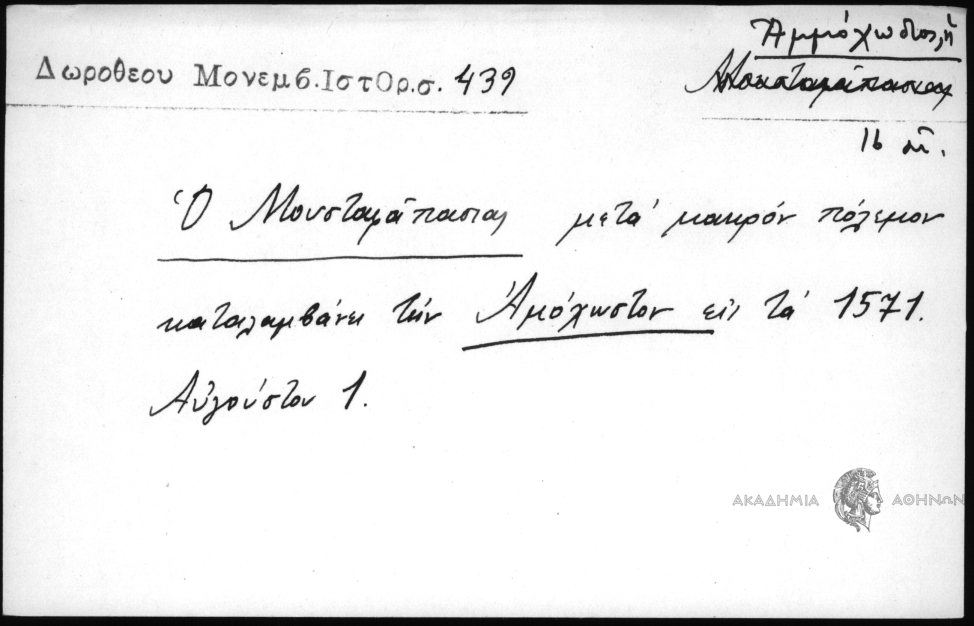 Ἀμμόχωστος, ἡ
Δωροθεου Μονεμβ.ΙστΟρ.σ. 439
Μουσταφᾶπασιας
16 αἰ.
Ὁ Μουσταφᾶπασιας μετά μακρόν πόλεμον
καταλαμβάνει τήν Ἀμόχωστον εἰς τά 1571.
Αὐγούστου 1.
ΑΚΑΔΗΜΙΑ ΑΘΗΝΩΝ